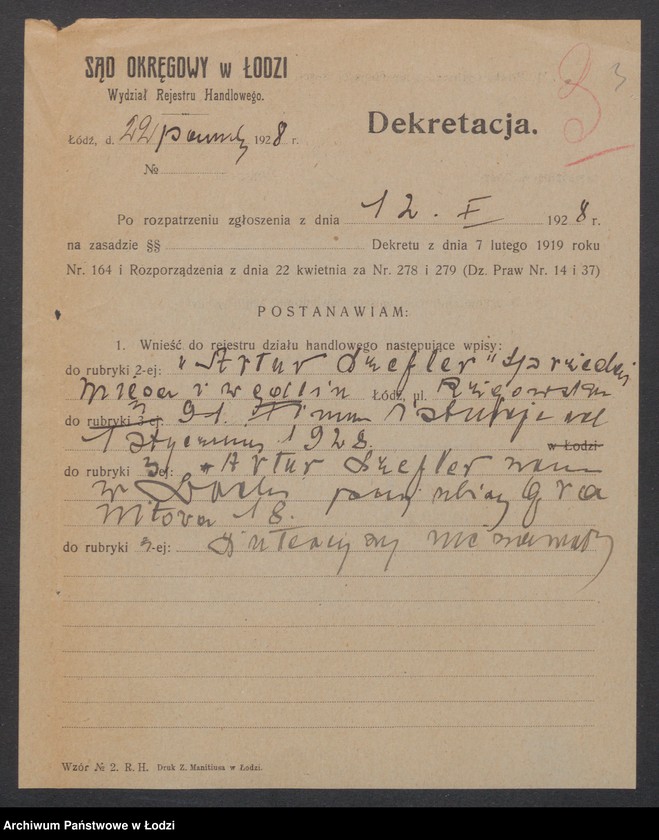 SĄD OKRĘGOWY w ŁODZI
Wydział Rejestru Handlowego.
3
3
Dekretacja.
Łódź, d. 22 1928 r.
№
Po rozpatrzeniu zgłoszenia z dnia 12. X 1928 r.
na zasadzie §§ Dekretu z dnia 7 lutego 1919 roku
Nr. 164 i Rozporządzenia z dnia 22 kwietnia za Nr. 278 i 279 (Dz. Praw Nr. 14 i 37)
POSTANAWIAM:
1. Wnieść do rejestru działu handlowego następujące wpisy:
do rubryki 2-ej: "Artur Szefler" Sprzedaż
mięsa i wędlin Łódź, ul. Rzgowska
do rubryki 3-ej: 91. Firma istnieje od
1 stycznia 1928. w Łodzi
do rubryki 3-ej: Artur Szefler zam.
w Łodzi przy ulicy Gra
bitowa 18.
do rubryki -ej: Intercyzy nie zawarł
Wzór № 2. R. H. Druk Z. Manitiusa w Łodzi.
Archiwum Państwowe w Łodzi